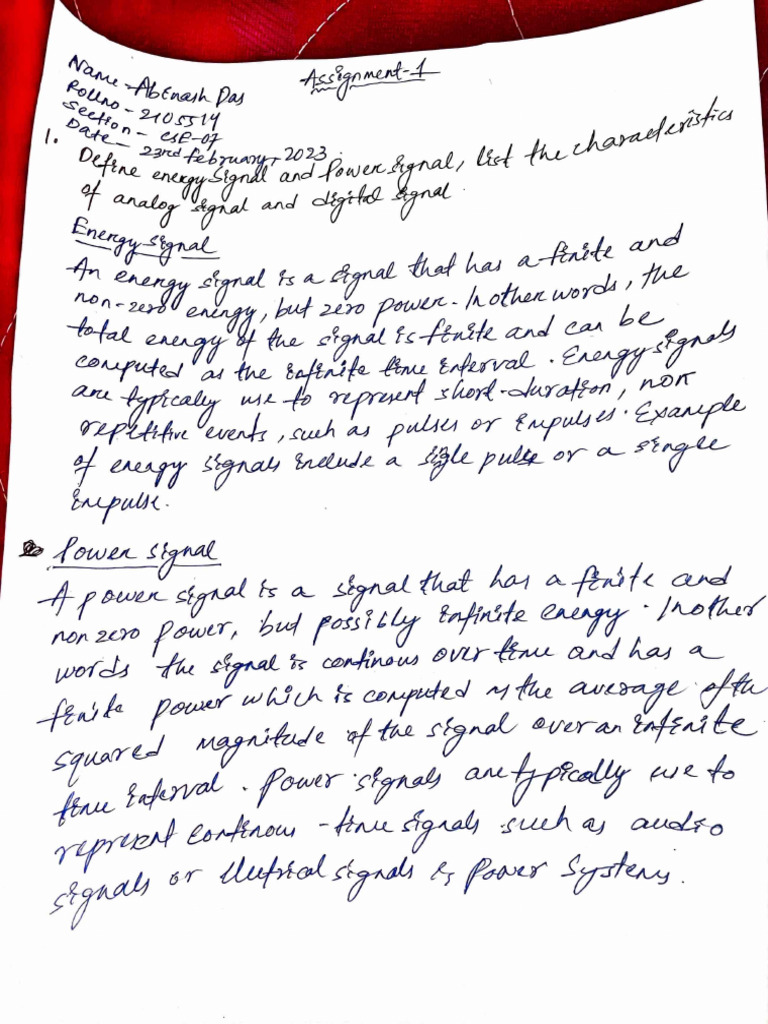 Assignment-1
Name-Abinash Das
Rollno-2105514
Section-CSE-07
Date-23rd february, 2023.
1. Define energy signal and Power signal, list the characteristics
of analog signal and digital signal.
Energy signal
An energy signal is a signal that has a finite and
non-zero energy, but zero power. In other words, the
total energy of the signal is finite and can be
computed as the infinite time interval. Energy signals
are typically use to represent short-duration, non
repetitive events, such as pulses or impulses. Example
of energy signals include a sigle pulse or a single
impulse.
Power signal
A power signal is a signal that has a finite and
non zero power, but possibly infinite energy. In other
words the signal is continous over time and has a
finite power which is computed as the average of the
squared magnitude of the signal over an infinite
time interval. Power signals are typically use to
represent continous-time signals such as audio
signals or electrical signals is Power Systems.